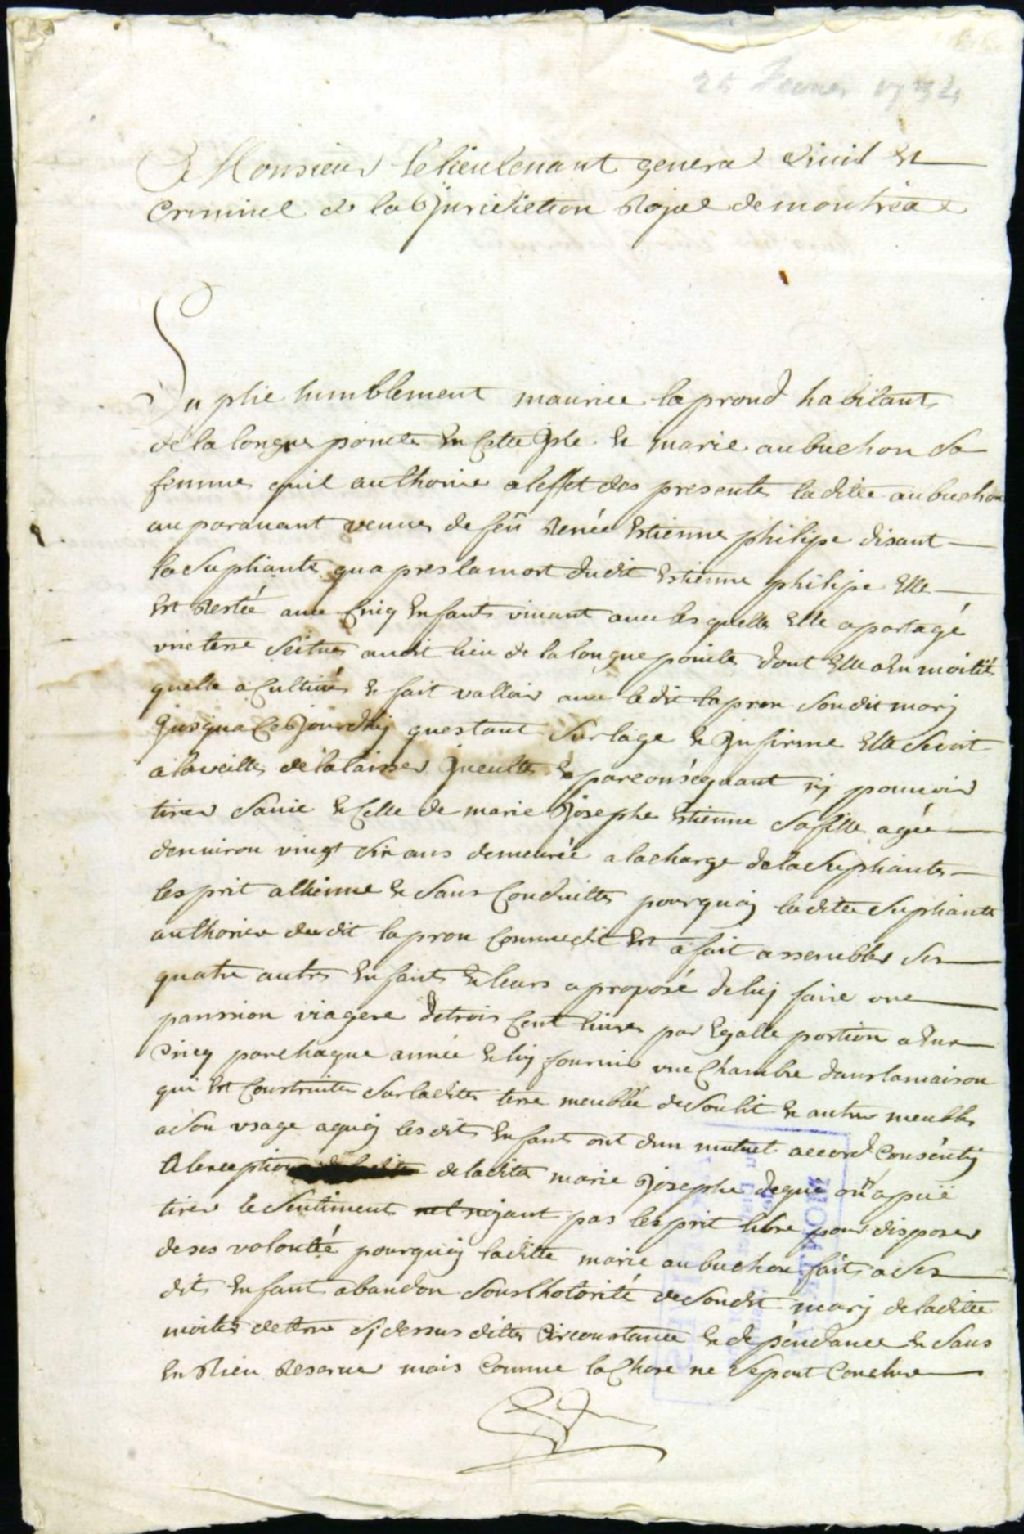 25 fevrier 1754
A Monsieur le lieutenant general Civil Et
Criminel de la Jurisdiction Royal de montreal
Suplie humblement maurice laprond habitant
de la longue pointe En Cette Isle Et marie aubuchon Sa
femme quil authorise a leffet des presente ladite aubuchon
auparavant veuve de feü René Estienne philipe disant
la Supliante qua pres la mort dudit Estienne philipe Elle
Est Restée avec Cinq Enfants vivant avec les quelle Elle a partagé
vne terre Seitue audit lieu de la longue pointe dont Elle a Eu moitié
quelle a Cultivé & fait valloir avec ledit lapron Son dit marj
Jusqua Ce Jourdhuj questant Sur lage & Infirme Elle Seroit
a la veille de la laisser Inculte & par consequant nj pouvoir
tirer Sa vie & Celle de marie Josephe Estienne Sa fille agée
denviron vingt Six ans demeurée a la charge de la Supliante
lesprit allienne & Sans Conduitte pourquoj ladite Supliante
authorisee dudit lapron Comme dit Est a fait assembler Ses
quatre autres Enfants & leurs a proposé de luj faire vne
panssion viagere de trois Cent livres par Egalle portion a Eux
Cinq par chaque année & luj fournir vne Chambre dans la maison
qui Est Construitte Sur ladite terre meublée de Son lit & autres meubles
a Son vsage a quoj les dits Enfants ont dun mutuel accord Consentij
A lexception de ladite marie Josephe de qui on a puë
tirer le Sentiment nayant pas lesprit libre pour disposer
de ses volonté pourquoj laditte marie aubuchon fait a Ses
dit Enfant abandon Sous lhotorité de Son dit marj de laditte
moitié de terre Cj dessus dite Circonstance & dependance & Sans
En Rien Reserver mais Comme la Chose ne Se peut Conclure